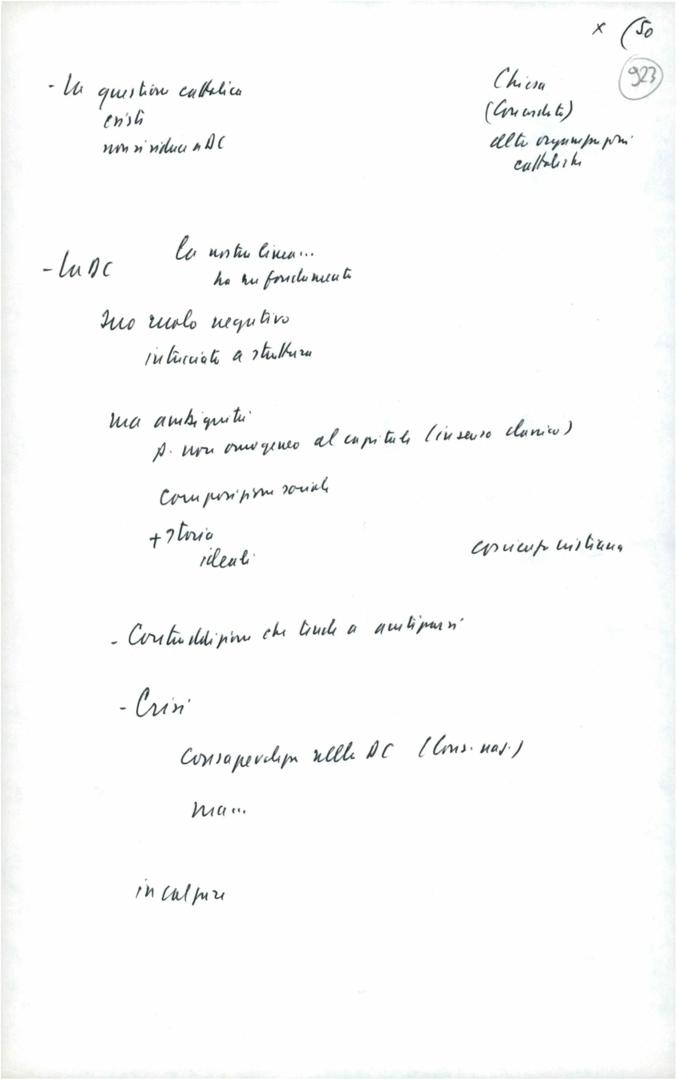 x (50
923
- La questione cattolica
esiste
non si riduce a DC
Chiesa
(Concordato)
altre organizzazioni
cattoliche
- La DC
la nostra linea...
ha un fondamento
Suo ruolo negativo
intrecciato a struttura
ma ambiguità
p. non omogeneo al capitale (in senso classico)
Composizione sociale
+ storia
ideali
coscienza cristiana
- Contraddizione che tende a
- Crisi
Consapevolezza nella DC (Cons. naz.)
ma...
incalzare